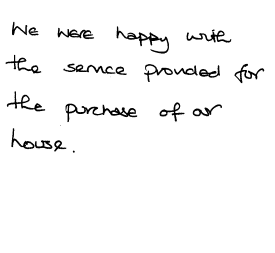 We were happy with
the service provided for
the purchase of our
house.